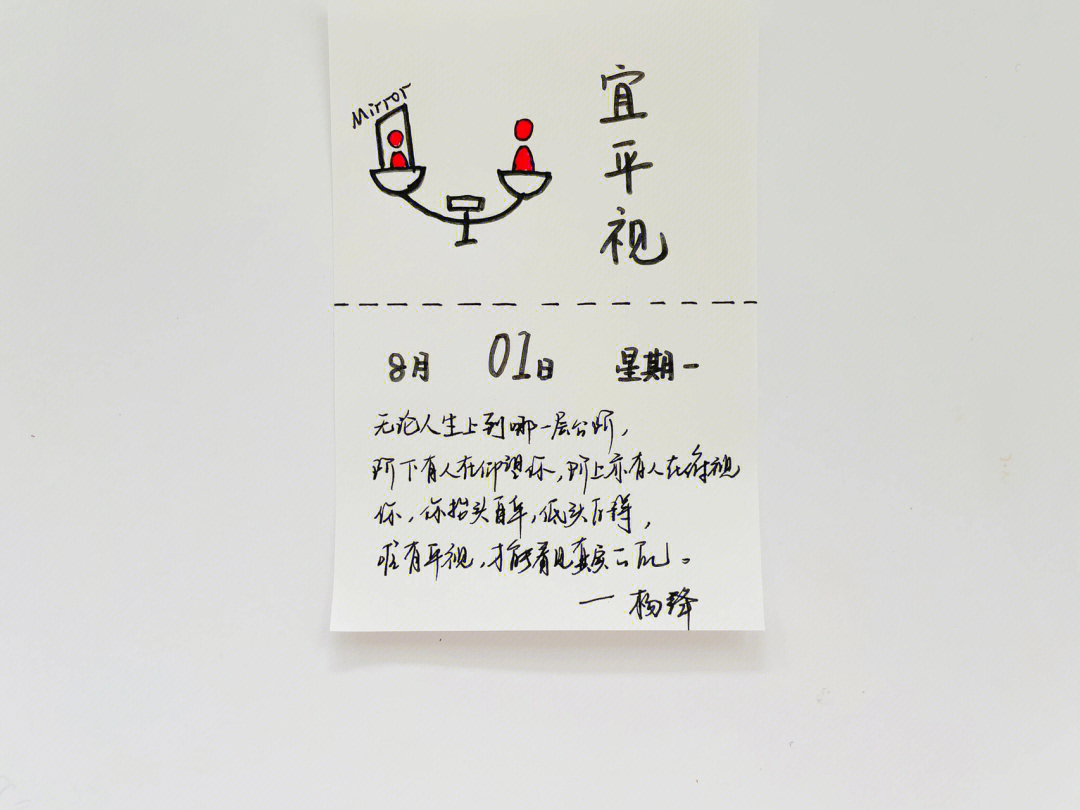 Mirror
宜平视
8月 01日 星期一
无论人生上到哪一层台阶，
阶下有人在仰望你，阶上亦有人在俯视
你，你抬头自卑，低头自得，
唯有平视，才能看见真实。
— 杨绛